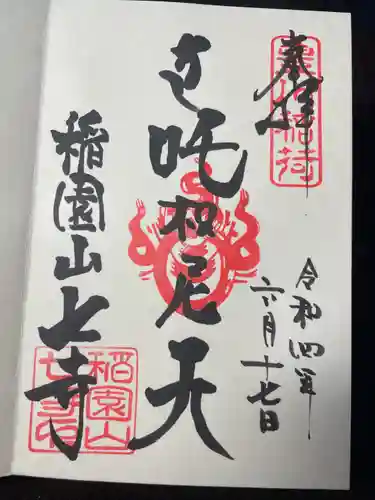 奉拝
令和四年
六月十七日
吒枳尼天
稲園山七寺
稲園山
七寺印